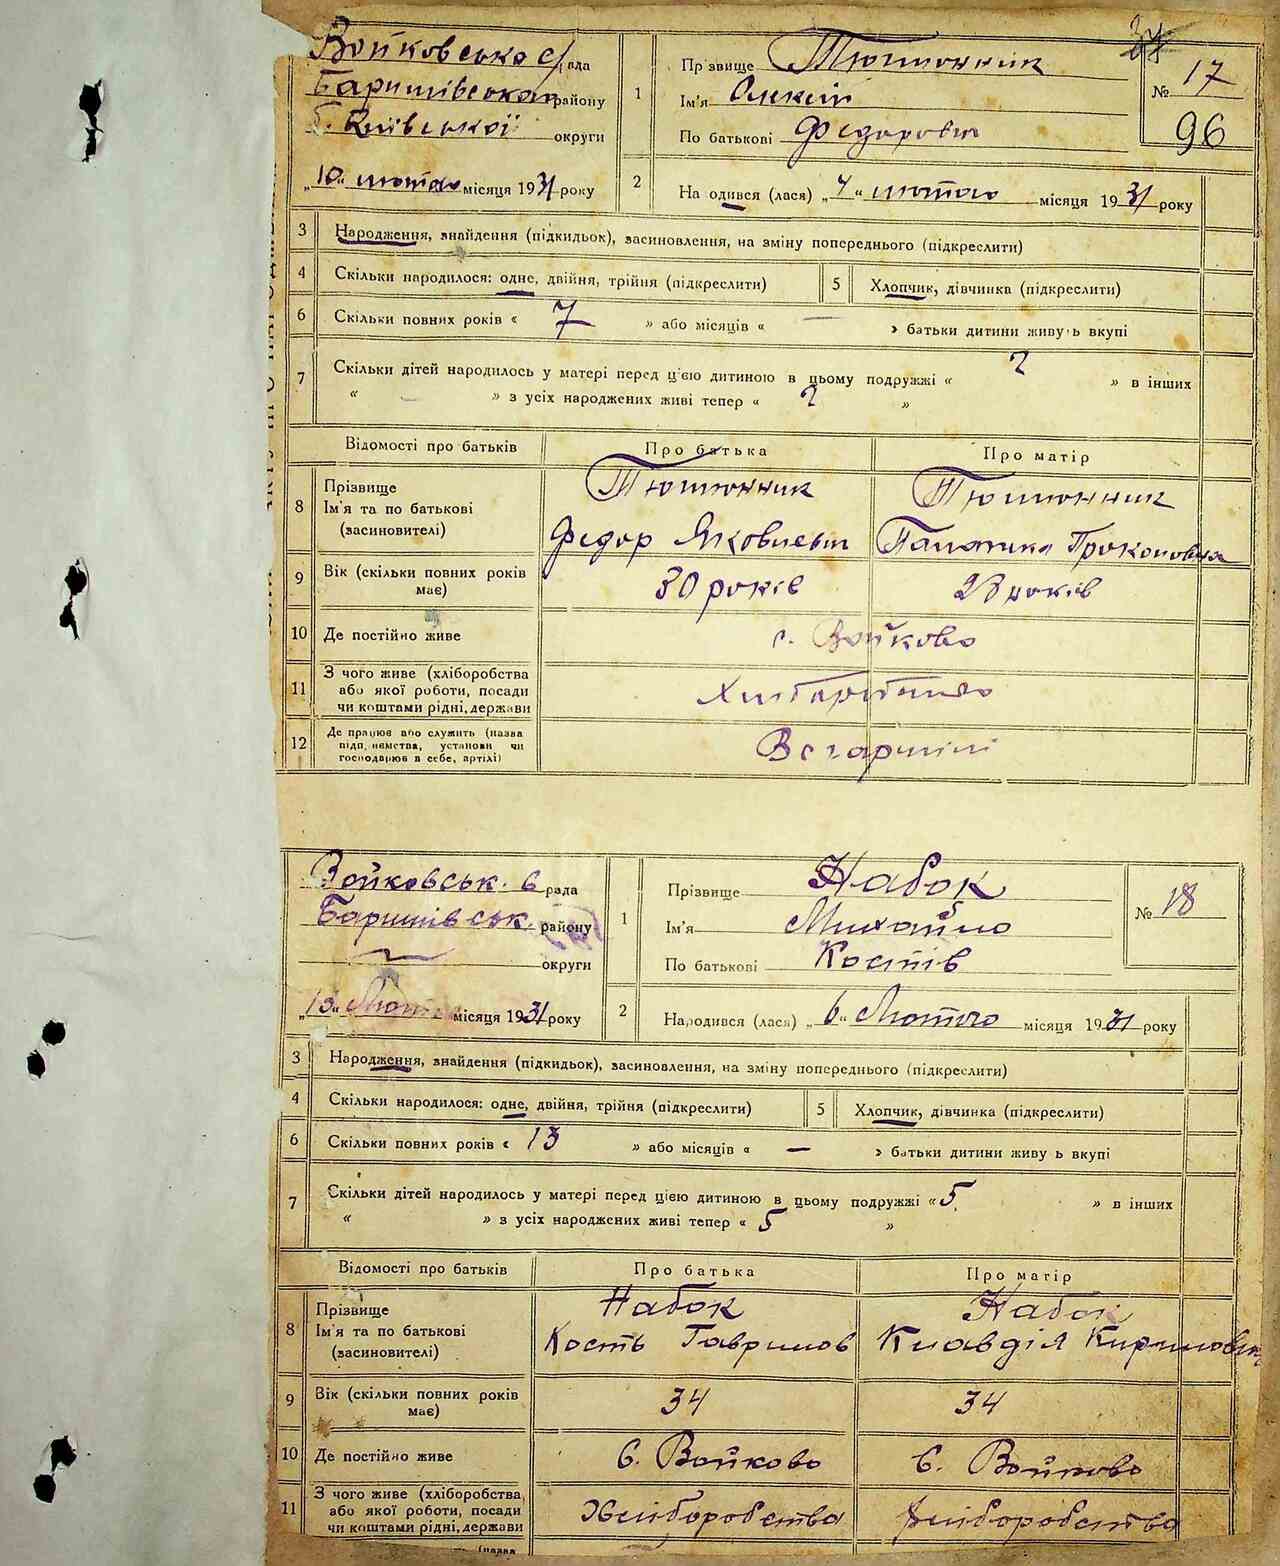 Войковська с/рада
Баришівського району
б. Київської округи
„10" лютого місяця 1931 року
1
Прізвище Тютюнник
Ім'я Олексій
По батькові Федорович
37
№ 17
96
2
На одився (лася) „4" лютого місяця 1931 року
3 Народження, знайдення (підкидьок), засиновлення, на зміну попереднього (підкреслити)
4 Скільки народилося: одне, двійня, трійня (підкреслити) 5 Хлопчик, дівчинка (підкреслити)
6 Скільки повних років « 7 » або місяців « — » батьки дитини живу ь вкупі
7 Скільки дітей народилось у матері перед цією дитиною в цьому подружжі « 2 » в інших
« — » з усіх народжених живі тепер « 2 »
Відомості про батьків Про батька Про матір
8 Прізвище Ім'я та по батькові (засновителі)
Тютюнник Тютюнник
Федор Якович Прокоповна
9 Вік (скільки повних років має) 30 років 28 років
10 Де постійно живе с. Войково
11 З чого живе (хліборобства або якої роботи, посади чи коштами рідні, держави
12 Де працює або служить (назва підп иємства, установи чи господарює в себе, артілі) В с/артілі
Войковськ. с рада
Баришівськ. району
— округи
„13" Лютого місяця 1931 року
1
Прізвище Набок
Ім'я Михайло
По батькові Костів
№ 18
2
Народився (лася) „6" Лютого місяця 1931 року
3 Народження, знайдення (підкидьок), засиновлення, на зміну попереднього (підкреслити)
4 Скільки народилося: одне, двійня, трійня (підкреслити) 5 Хлопчик, дівчинка (підкреслити)
6 Скільки повних років « 13 » або місяців « — » батьки дитини живу ь вкупі
7 Скільки дітей народилось у матері перед цією дитиною в цьому подружжі « 5 » в інших
« » з усіх народжених живі тепер « 5 »
Відомості про батьків Про батька Про матір
8 Прізвище Ім'я та по батькові (засиновителі)
Набок Набок
Кость Гаврилов Клавдія Кирилов
9 Вік (скільки повних років має) 34 34
10 Де постійно живе С. Войково С. Войково
11 З чого живе (хліборобства, або якої роботи, посади чи коштами рідні, держави Хліборобства Хліборобства
(назва